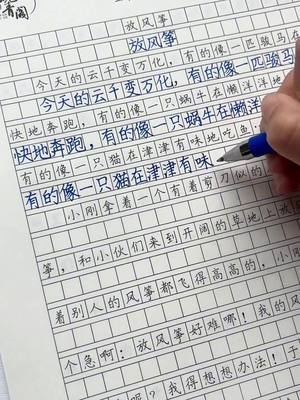 青阁
放风筝
放风筝
今天的云千变万化，有的像一匹骏马在
今天的云千变万化，有的像一匹骏马
快地奔跑，有的像一只蜗牛在懒洋洋地
快地奔跑，有的像一只蜗牛在懒洋
有的像一只猫在津津有味地吃鱼
有的像一只猫在津津有味
小刚拿着一个有着剪刀似的
筝，和小伙们来到开阔的草地上放
着别人的风筝都飞得高高的，小刚
个急啊：放风筝好难哪！我的风
呢？我得想想办法！于